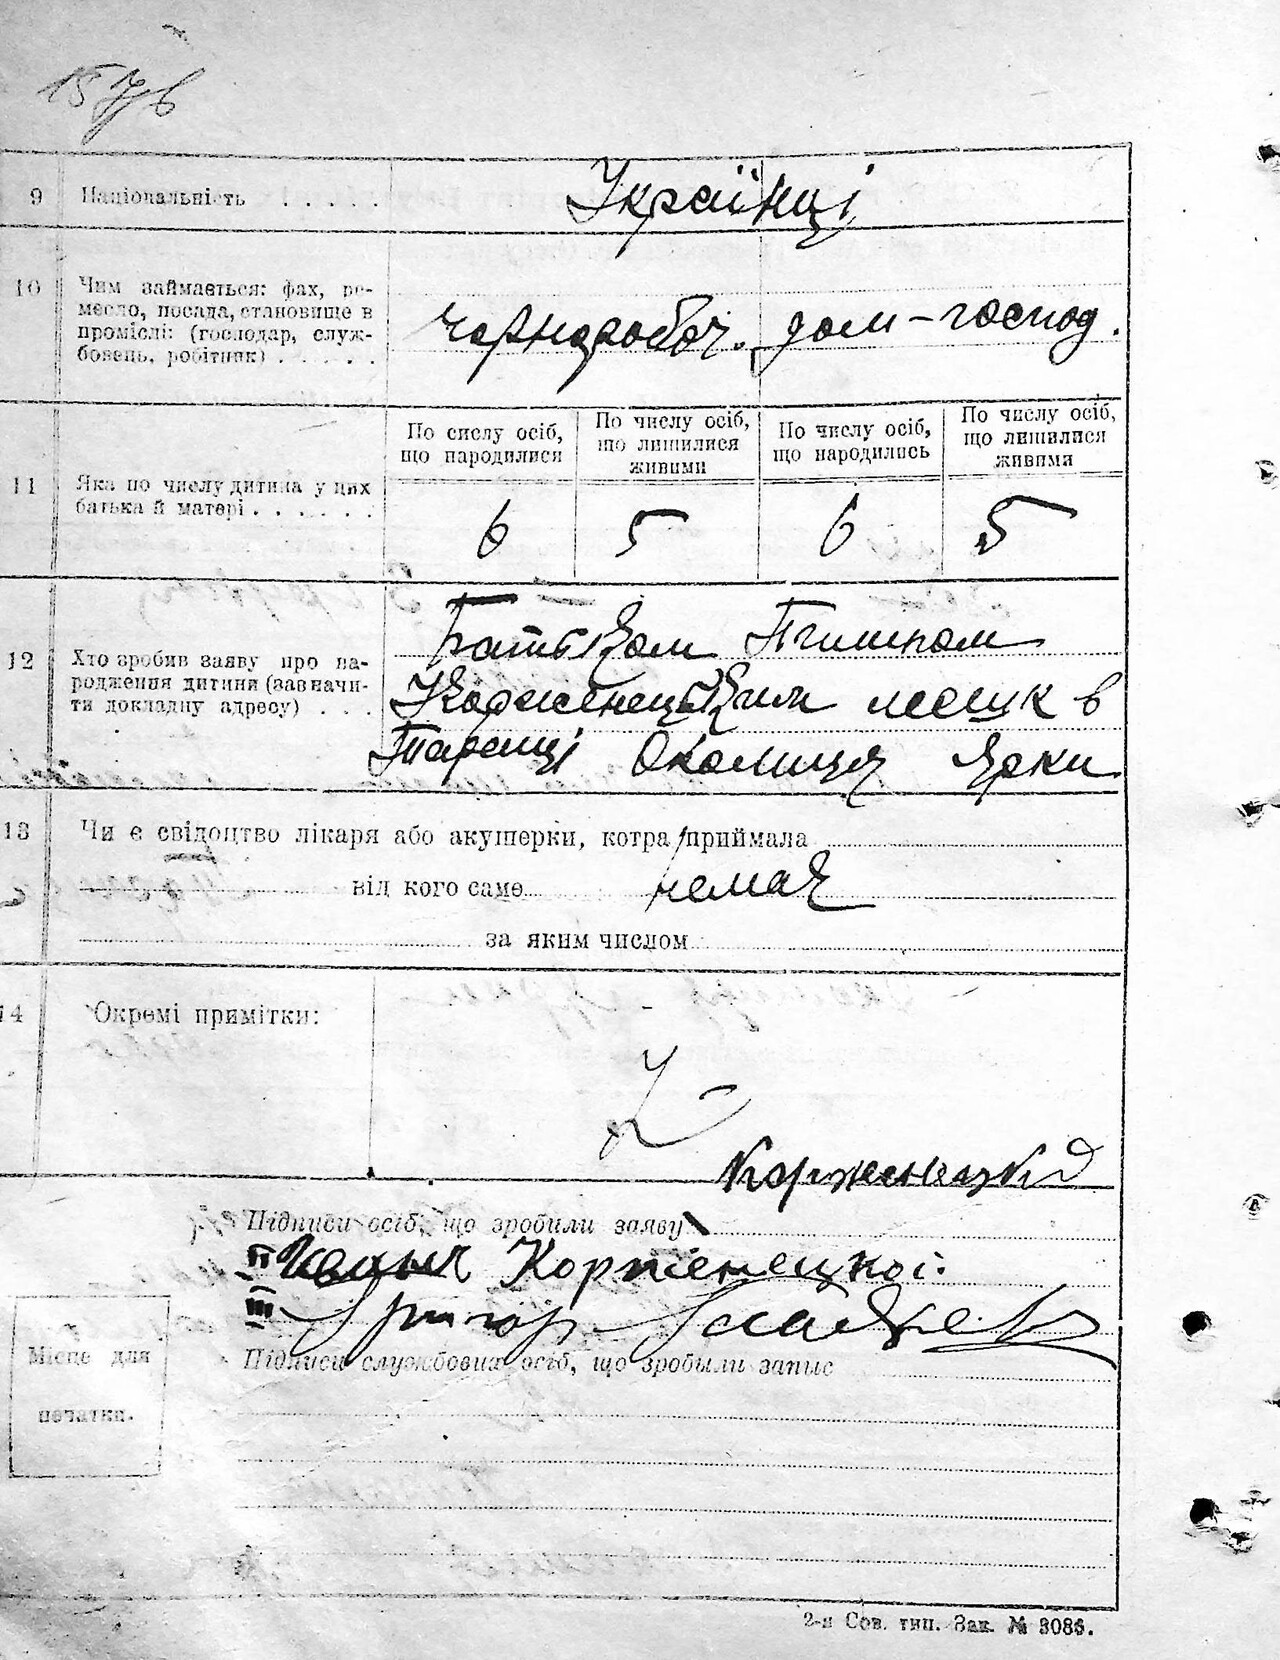 9 Національність . . . . . Українці
10 Чим займається: фах, ре-
месло, посада, становище в
промислі: (господар, служ-
бовець, робітник) . . . . .
чорнороboч. дом-господ.
По сислу осіб,
що народилися
По числу осіб,
що лишилися
живими
По числу осіб,
що народились
По числу осіб,
що лишилися
живими
11 Яка по числу дитина у цих
батька й матері . . . . . .
6 5 6 5
12 Хто зробив заяву про на-
родження дитини (зазначи-
ти докладну адресу) . . .
Батьком
Корженецьким мешк в
Таращі Околиця Ярки
13 Чи є свідоцтво лікаря або акушерки, котра приймала
від кого саме немає
за яким числом
14 Окремі примітки:
Корженецкій
Підписи осіб, що зробили заяву
II Корженецкої
III Григор
Підписи службових осіб, що зробыли запис
Місце для
печатки.
2-я Сов. тип. Зак. № 3086.